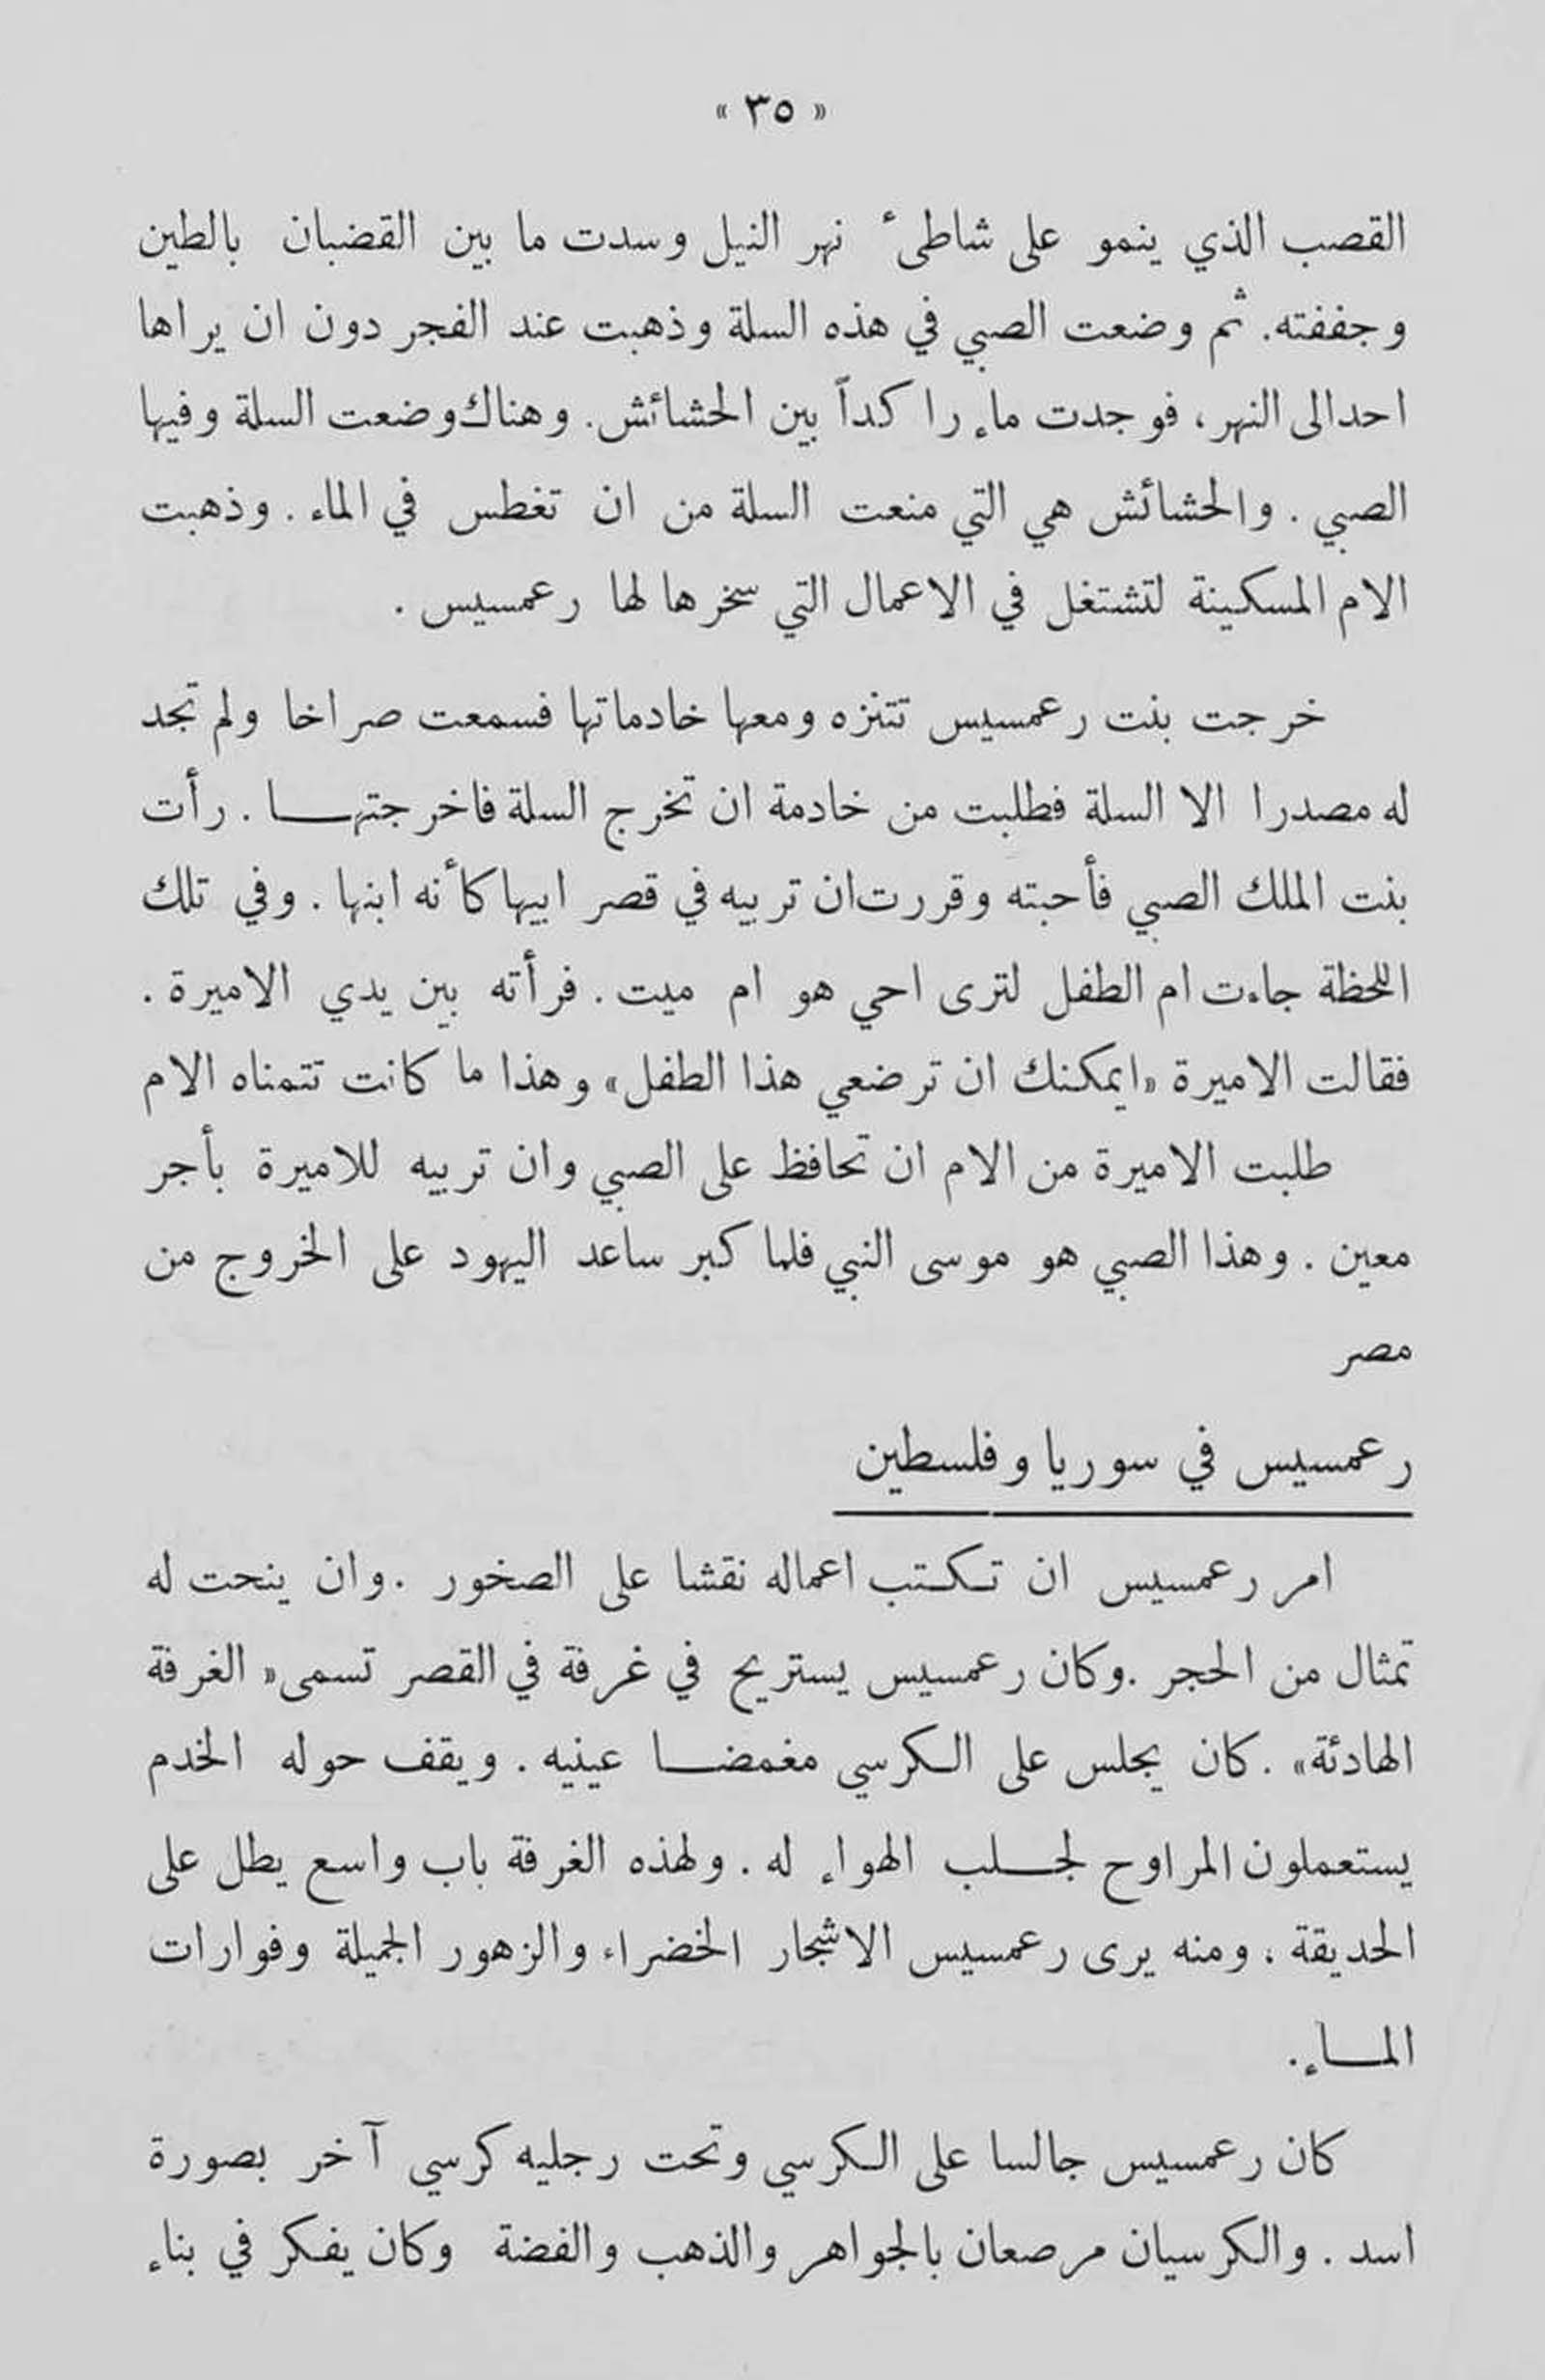 « ٣٥ »
القصب الذي ينمو على شاطىء نهر النيل وسدت ما بين القضبان بالطين
وجففته. ثم وضعت الصبي في هذه السلة وذهبت عند الفجر دون ان يراها
احد الى النهر، فوجدت ماء راكداً بين الحشائش. وهناك وضعت السلة وفيها
الصبي. والحشائش هي التي منعت السلة من ان تغطس في الماء. وذهبت
الام المسكينة لتشتغل في الاعمال التي سخرها لها رعمسيس.
خرجت بنت رعمسيس تتنزه ومعها خادماتها فسمعت صراخا ولم تجد
له مصدرا الا السلة فطلبت من خادمة ان تخرج السلة فاخرجتهـــا. رأت
بنت الملك الصبي فأحبته وقررت ان تربيه في قصر ابيها كأنه ابنها. وفي تلك
اللحظة جاءت ام الطفل لترى احي هو ام ميت. فرأته بين يدي الاميرة.
فقالت الاميرة «ايمكنك ان ترضعي هذا الطفل» وهذا ما كانت تتمناه الام
طلبت الاميرة من الام ان تحافظ على الصبي وان تربيه للاميرة بأجر
معين. وهذا الصبي هو موسى النبي فلما كبر ساعد اليهود على الخروج من
مصر
رعمسيس في سوريا وفلسطين
امر رعمسيس ان تـكـتب اعماله نقشا على الصخور. وان ينحت له
تمثال من الحجر. وكان رعمسيس يستريح في غرفة في القصر تسمى « الغرفة
الهادئة». كان يجلس على الـكرسي مغمضـــا عينيه. ويقف حوله الخدم
يستعملون المراوح لجـــلب الهواء له. ولهذه الغرفة باب واسع يطل على
الحديقة، ومنه يرى رعمسيس الاشجار الخضراء والزهور الجميلة وفوارات
المـــاء.
كان رعمسيس جالسا على الـكرسي وتحت رجليه كرسي آخر بصورة
اسد. والكرسيان مرصعان بالجواهر والذهب والفضة وكان يفـكر في بناء